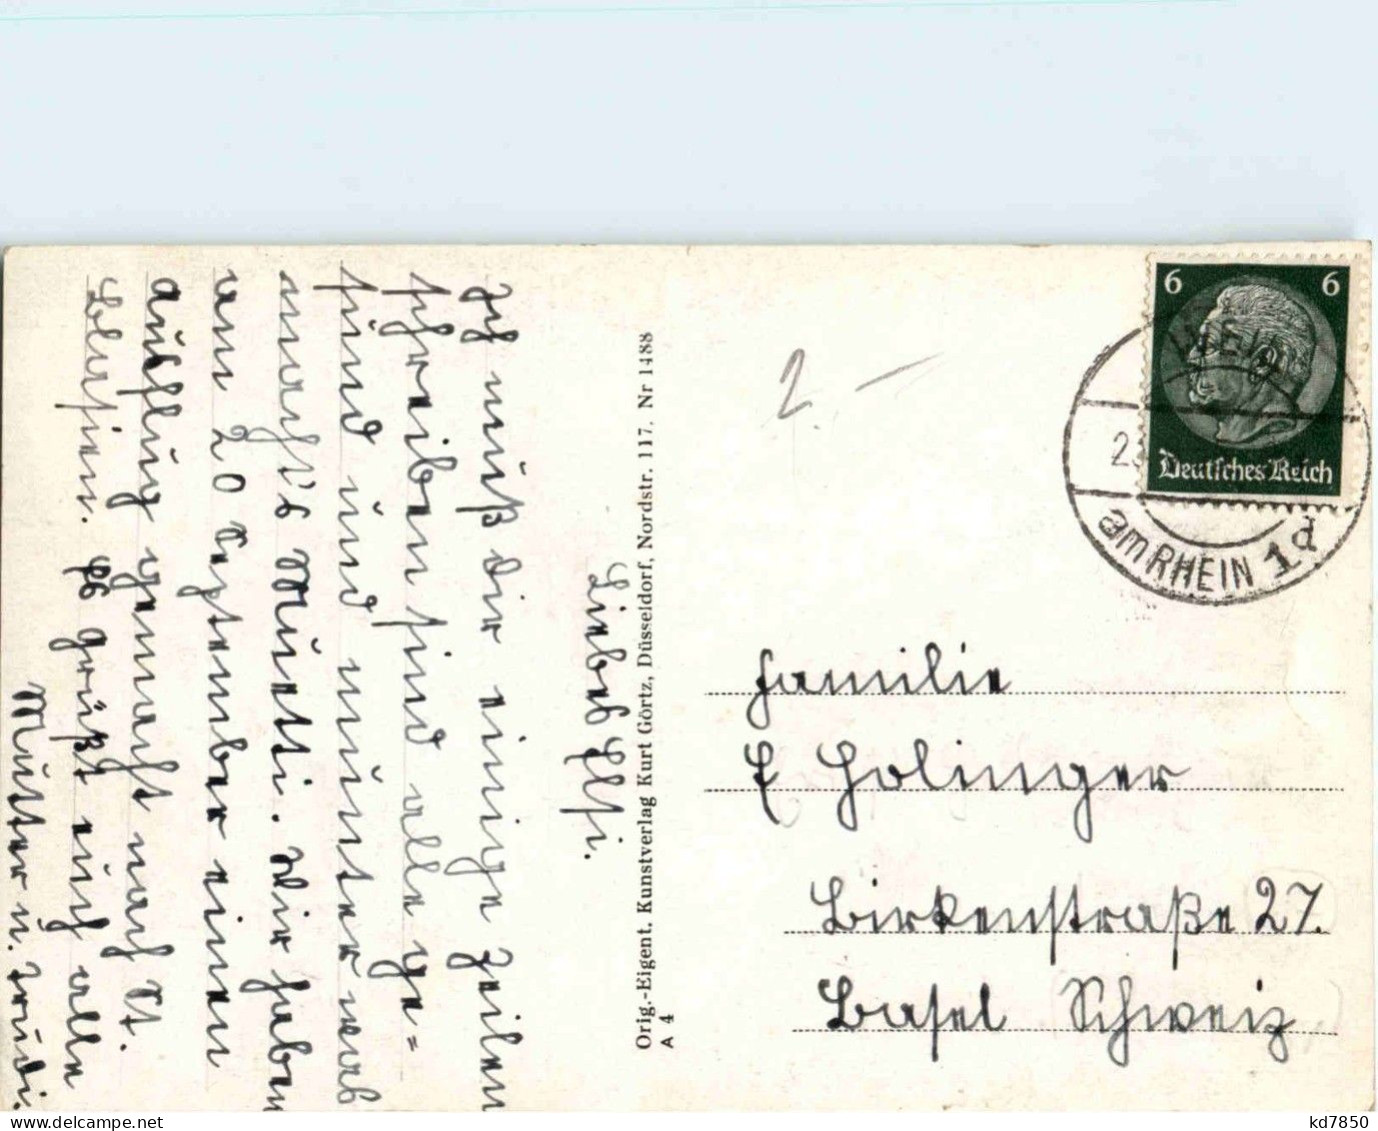 Liebes Elsi.
Ich muß dir einige Zeilen
schreiben sind alle ge=
sund und munter was
macht's Muetti. Wir haben
am 20 September einen
ausflug gemacht nach St.
Blasien. Es grüßt euch alle
Mutter u. Trudi.
Orig.-Eigent. Kunstverlag Kurt Görtz, Düsseldorf, Nordstr. 117. Nr 1488
A 4
2.-
6 6
Deutsches Reich
am RHEIN 1d
Familie
E Holinger
Birkenstraße 27.
Basel Schweiz
www.delcampe.net
kd7850